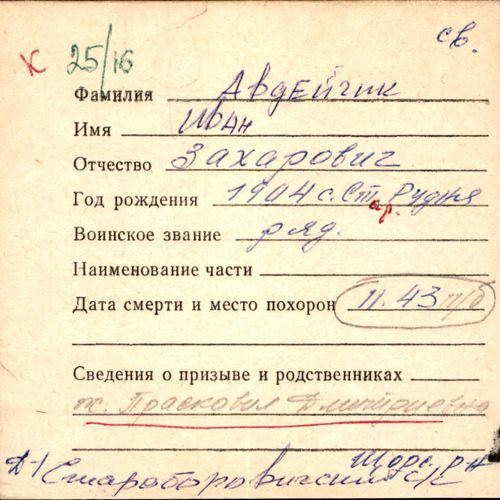 св.
К 25/16
Фамилия Авдейчик
Имя Иван
Отчество Захарович
Год рождения 1904 с. Стар. Рудня
Воинское звание ряд.
Наименование части
Дата смерти и место похорон 11.43 п/б
Сведения о призыве и родственниках
ж. Прасковия Дмитриевна
Щорс. р-н
Д-1 Стараборовичский с/с